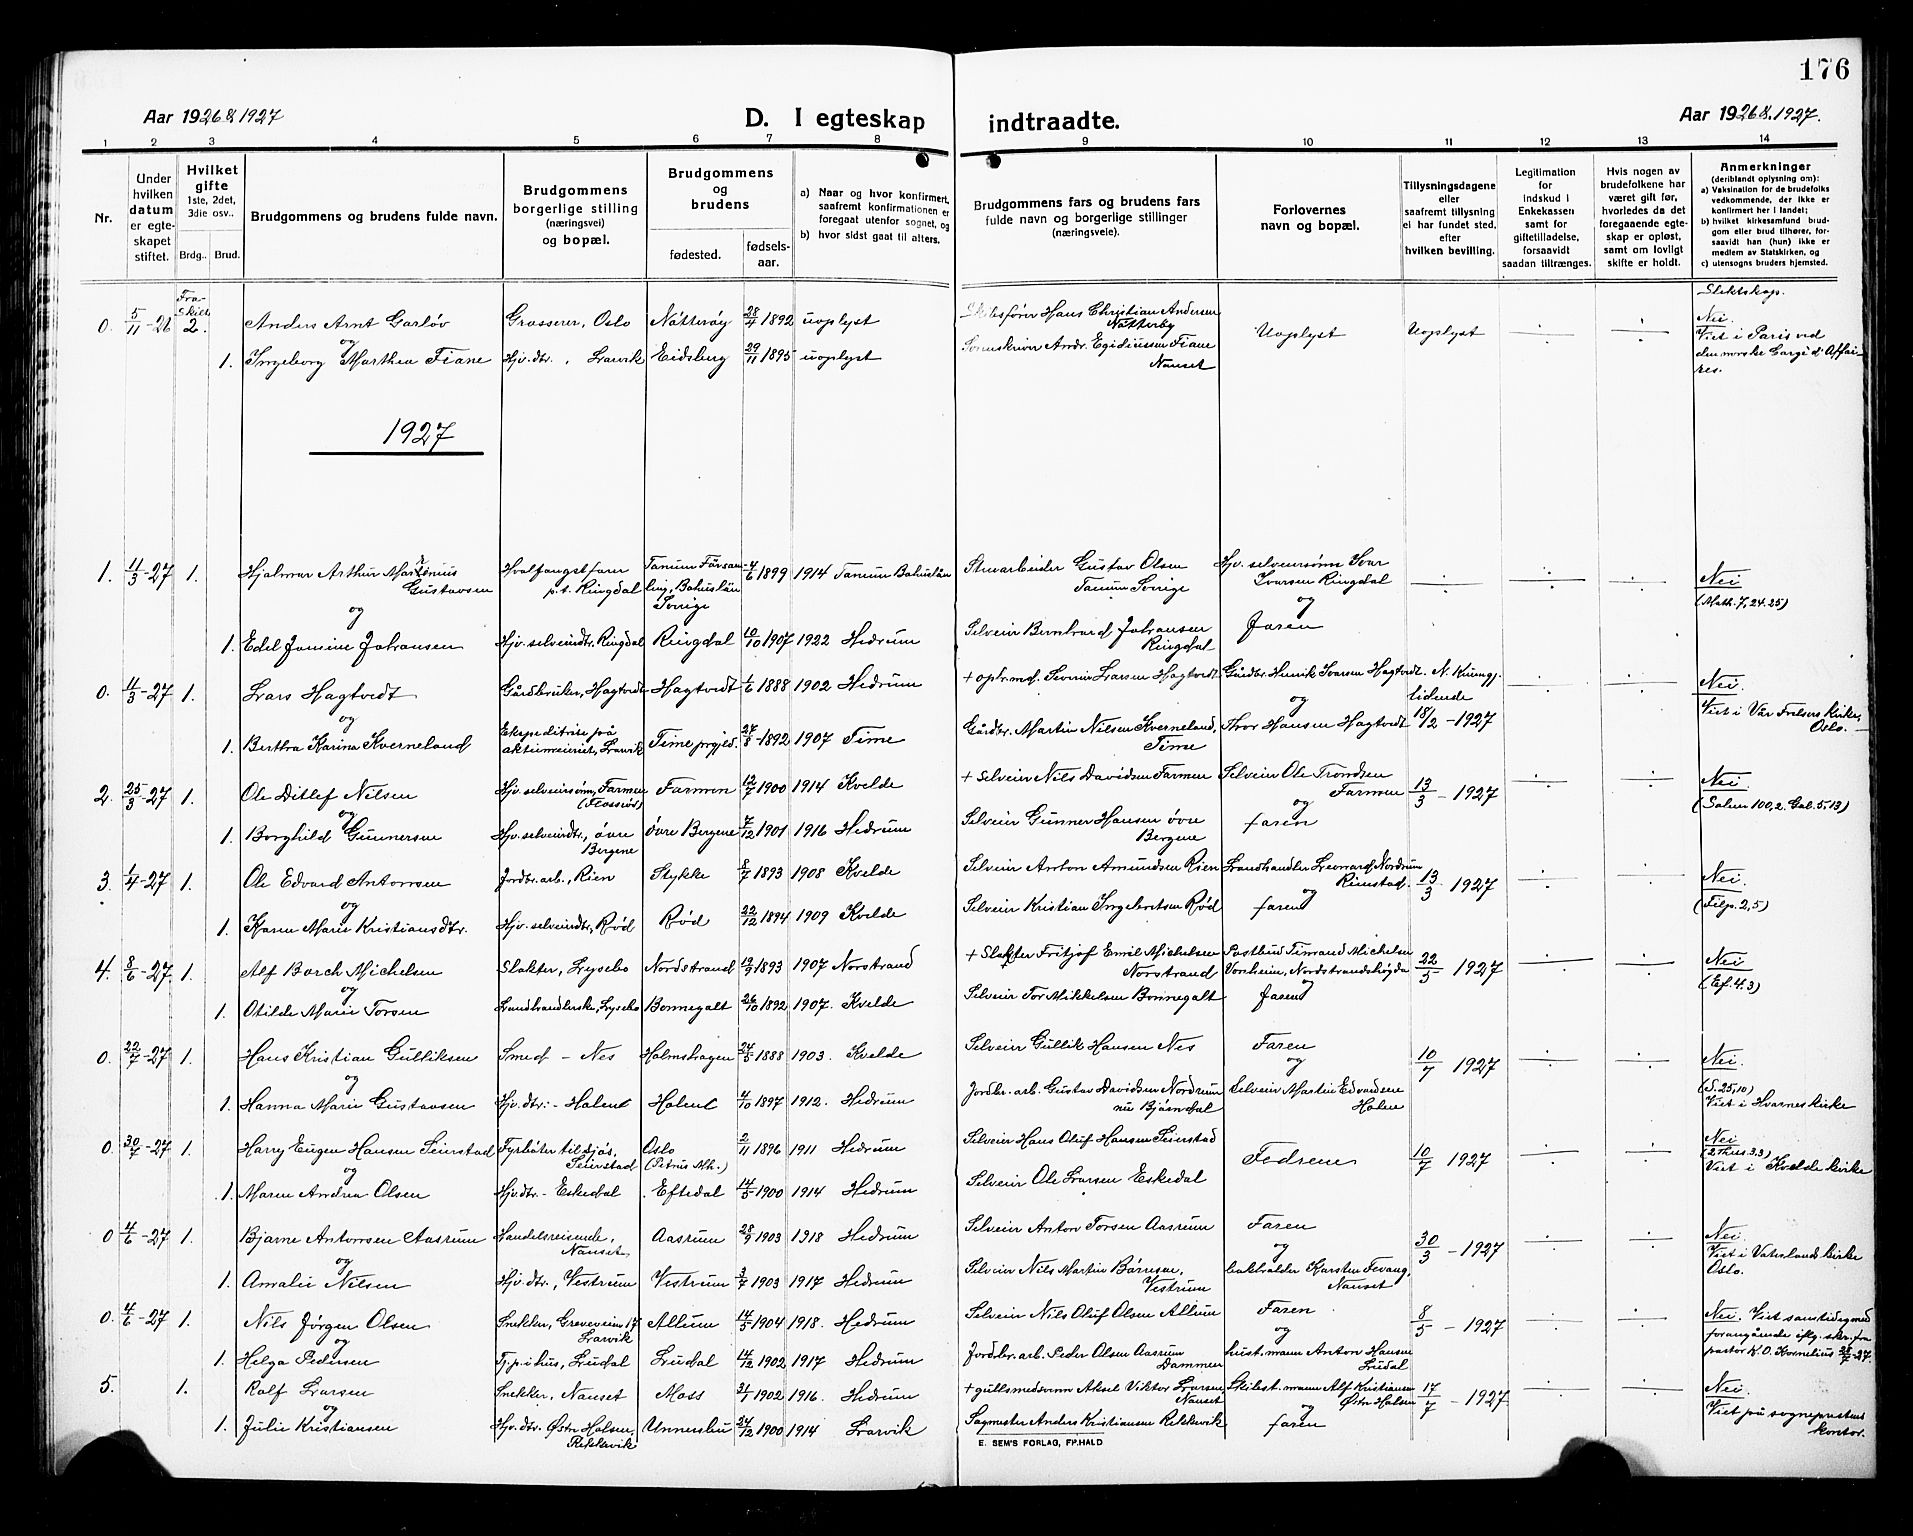 176
Aar 1926 & 1927
D. I egteskap indtraadte.
Aar 1926 & 1927.
1 2 3 4 5 6 7 8 9 10 11 12 13 14
Nr.
Under hvilken datum er egteskapet stiftet.
Hvilket gifte 1ste, 2det, 3die osv..
Brdg.. Brud.
Brudgommens og brudens fulde navn.
Brudgommens borgerlige stilling (næringsvei) og bopæl.
Brudgommens og brudens
fødested. fødselsaar.
a) Naar og hvor konfirmert, saafremt konfirmationen er foregaat utenfor sognet, og
b) hvor sidst gaat til alters.
Brudgommens fars og brudens fars fulde navn og borgerlige stillinger (næringsveie).
Forlovernes navn og bopæl.
Tillysningsdagene eller saafremt tillysning ei har fundet sted, efter hvilken bevilling.
Legitimation for indskud i Enkekassen samt for giftetilladelse, forsaavidt saadan tiltrænges.
Hvis nogen av brudefolkene har været gift før, hvorledes da det foregaaende egteskap er opløst, samt om lovligt skifte er holdt.
Anmerkninger (deriblandt oplysning om):
a) Vaksination for de brudefolks vedkommende, der ikke er konfirmert her i landet;
b) hvilket kirkesamfund brudgom eller brud tilhører, forsaavidt han (hun) ikke er medlem av Statskirken, og
c) utensogns bruders hjemsted.
Slektskap.
0. 5/11-26 Fraskilt 2. Anders Arnt Garløv Grosserer, Oslo Nøtterøy 28/4 1892 uoplyst Hans Christian Andersen Uoplyst Uoplyst Nei
og
1. Ingeborg Marthea Fiane Hjv. dtr., Larvik Eidsberg 29/11 1895 uoplyst Andr. Egidiussen Fiane Nanset
Viet i Paris ved den norske Cargé d'Affaires.
1927
1. 11/3-27 1. Hjalmar Arthur Martinius Gustavsen Hvalfangstfarer p.t. Ringdal Tanum Församling, Bohuslän Sverige 4/6 1899 1914 Tanum Bohuslän Gustav Olsen Tanum Sverige Hjv. selveiersønn Ivar Iversen Ringdal Nei (Math. 7, 24.25)
og
1. Edel Jansine Johansen Hjv. selveierdtr. Ringdal Ringdal 10/10 1907 1922 Hedrum Selveier Bernhard Johansen Ringdal og Faren
0. 11/3-27 1. Lars Hagtvedt Gårdbruker, Hagtvedt Hagtvedt 1/6 1888 1902 Hedrum Larsen Hagtvedt Gårdbr. Henrik Iversen Hagtvedt. N. Kunngj. lidende 18/2-1927 Nei.
og
1. Bertha Karina Kverneland Ekspeditrise på aktiemeieriet, Larvik Time prgjld. 27/8-1892 1907 Time Gårdbr. Martin Nilsen Kverneland, Time og Thor Hansen Hagtvedt
Viet i Vår Frelsers Kirke, Oslo.
2. 25/3-27 1. Ole Ditlef Nilsen Hjv. selveiersønn, Farmen Farmen 12/7 1900 1914 Kvelde + Selveier Nils Davidsen Farmen Selveier Ole Trondsen Farmen 13/3-1927 Nei (Salm 100,2. Gal. 5,13)
og
1. Borghild Gunnersen Hjv. selveierdtr., øvre Bergene øvre Bergene 7/12 1901 1916 Hedrum Selveier Gunner Hansen øvre Bergene og faren
3. 1/4-27 1. Ole Edvard Antonsen Jordbr. arb., Rien Stykke 8/7 1893 1908 Kvelde Selveier Anton Amundsen Rien Landhandler Leonard Nordrum Rimstad. 13/3 1927 Nei. (Filip. 2,5)
og
1. Karen Marie Kristiansdtr. Hjv. selveierdtr, Rød Rød 22/12 1894 1909 Kvelde Selveier Kristian Ingebretsen Rød og faren
4. 8/6-27 1. Alf Borch Michelsen Slakter, Lysebo Nordstrand 19/9 1893 1907 Norstrand + Slakter Fritjof Emil Michelsen Norstrand Postbud Michelsen Vonheim, Nordstrandshøgda 22/5 1927 Nei (Ef. 4.3)
og
1. Otilde Marie Torsen Landhandlerske, Lysebo Bonnegalt 26/10 1892 1907. Kvelde Selveier Tor Mikkelsen Bonnegalt og Faren
0. 22/7-27 1. Hans Kristian Gulliksen Smed - Nes Holmshagen 24/5 1888 1903. Kvelde Selveier Gullik Hansen Nes Faren 10/7 1927 Nei.
og
1. Hanna Marie Gustavsen Hjv. dtr. - Holent Holent 4/10 1897 1912. Hedrum Jordbr. arb. Gustav Davidsen Nordrum nu Bjørndal og Selveier Martin Edvardsen Holene
(S. 25,10) Viet i Hvarnes kirke
0. 30/7-27 1. Harry Eugen Hansen Seierstad Fyrbøter til sjøs, Seierstad Oslo (Petrus Mh.) 2/11 1896 1911 Hedrum Selveier Hans Oluf Hansen Seierstad Fedrene 10/7 1927 Nei (2 Thes. 3.3) Viet i Kvelde kirke
og
1. Maren Andrea Olsen Hjv. dtr. - Eskedal Eftedal 14/5 1900 1914 Hedrum Selveier Ole Larsen Eskedal
0 4/6-27 1. Bjarne Antonsen Aasrum Handelsreisende, Nanset Aasrum 28/9 1903 1918 Hedrum Selveier Anton Torsen Aasrum Faren 30/3-1927 Nei.
og
1. Amalie Nilsen Hjv. dtr, Vestrum Vestrum 3/7 1903 1917 Hedrum Selveier Nils Martin Børresen, Vestrum og bokholder Karsten Fevang, Nanset
Viet i Vaterlands kirke Oslo.
0. 4/6-27 1. Nils Jørgen Olsen Snekker, Greveveien 17 Larvik Allum 14/5 1904 1918. Hedrum Selveier Nils Oluf Olsen Allum Faren 8/5-1927 Nei. Viet samtidig med forangående iflg. skr. fra pastor K. O. Kornelius 25/7-27.
og
1. Helga Pedersen Tj. p. i hus, Lrudal Lrudal 14/12 1902 1917 Hedrum Jordbr. arb. Peder Olsen Aasrum Dammen og hust. mann Anton Hansen Lrudal
5. 1. Rolf Larsen Snekker, Nanset Moss 31/1 1902 1916. Hedrum + gullsmedsvenn Aksel Viktor Larsen, Nanset Skilest. mann Alf Kristiansen Østre Halsen 17/7-1927 Nei.
og
1. Julie Kristiansen Hjv. dtr. Østre Halsen, Rekkevik Unnersbu 24/12 1900 1914 Larvik Sagmester Anders Kristiansen Rekkevik og faren
Viet på sogneprestens kontor.
E. SEM'S FORLAG, FR.HALD